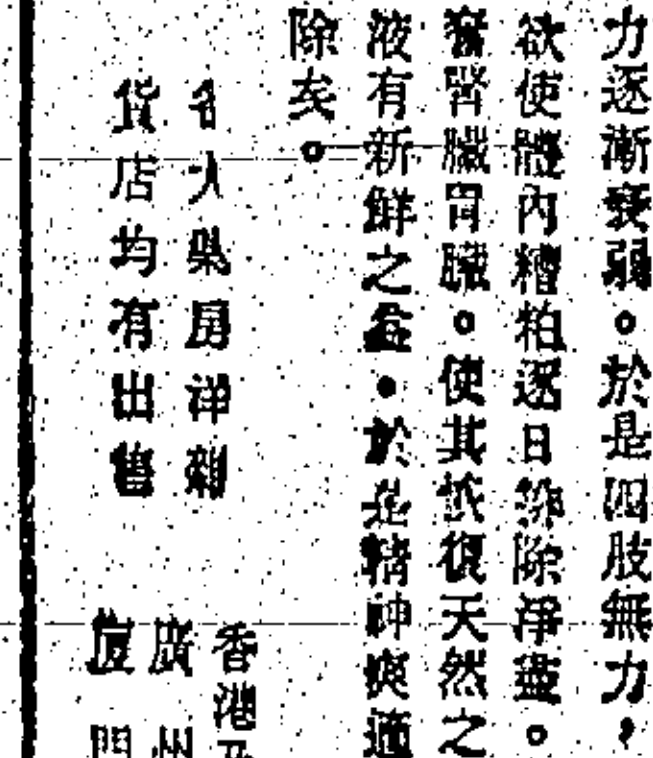 力逐漸衰弱。於是四肢無力，
欲使體內糟粕逐日排除淨盡。
腎臟胃臟。使其恢復天然之
液有新鮮之益。於是精神爽適
除矣。
各大藥房洋雜
貨店均有出售
香港及
廣州
廈門